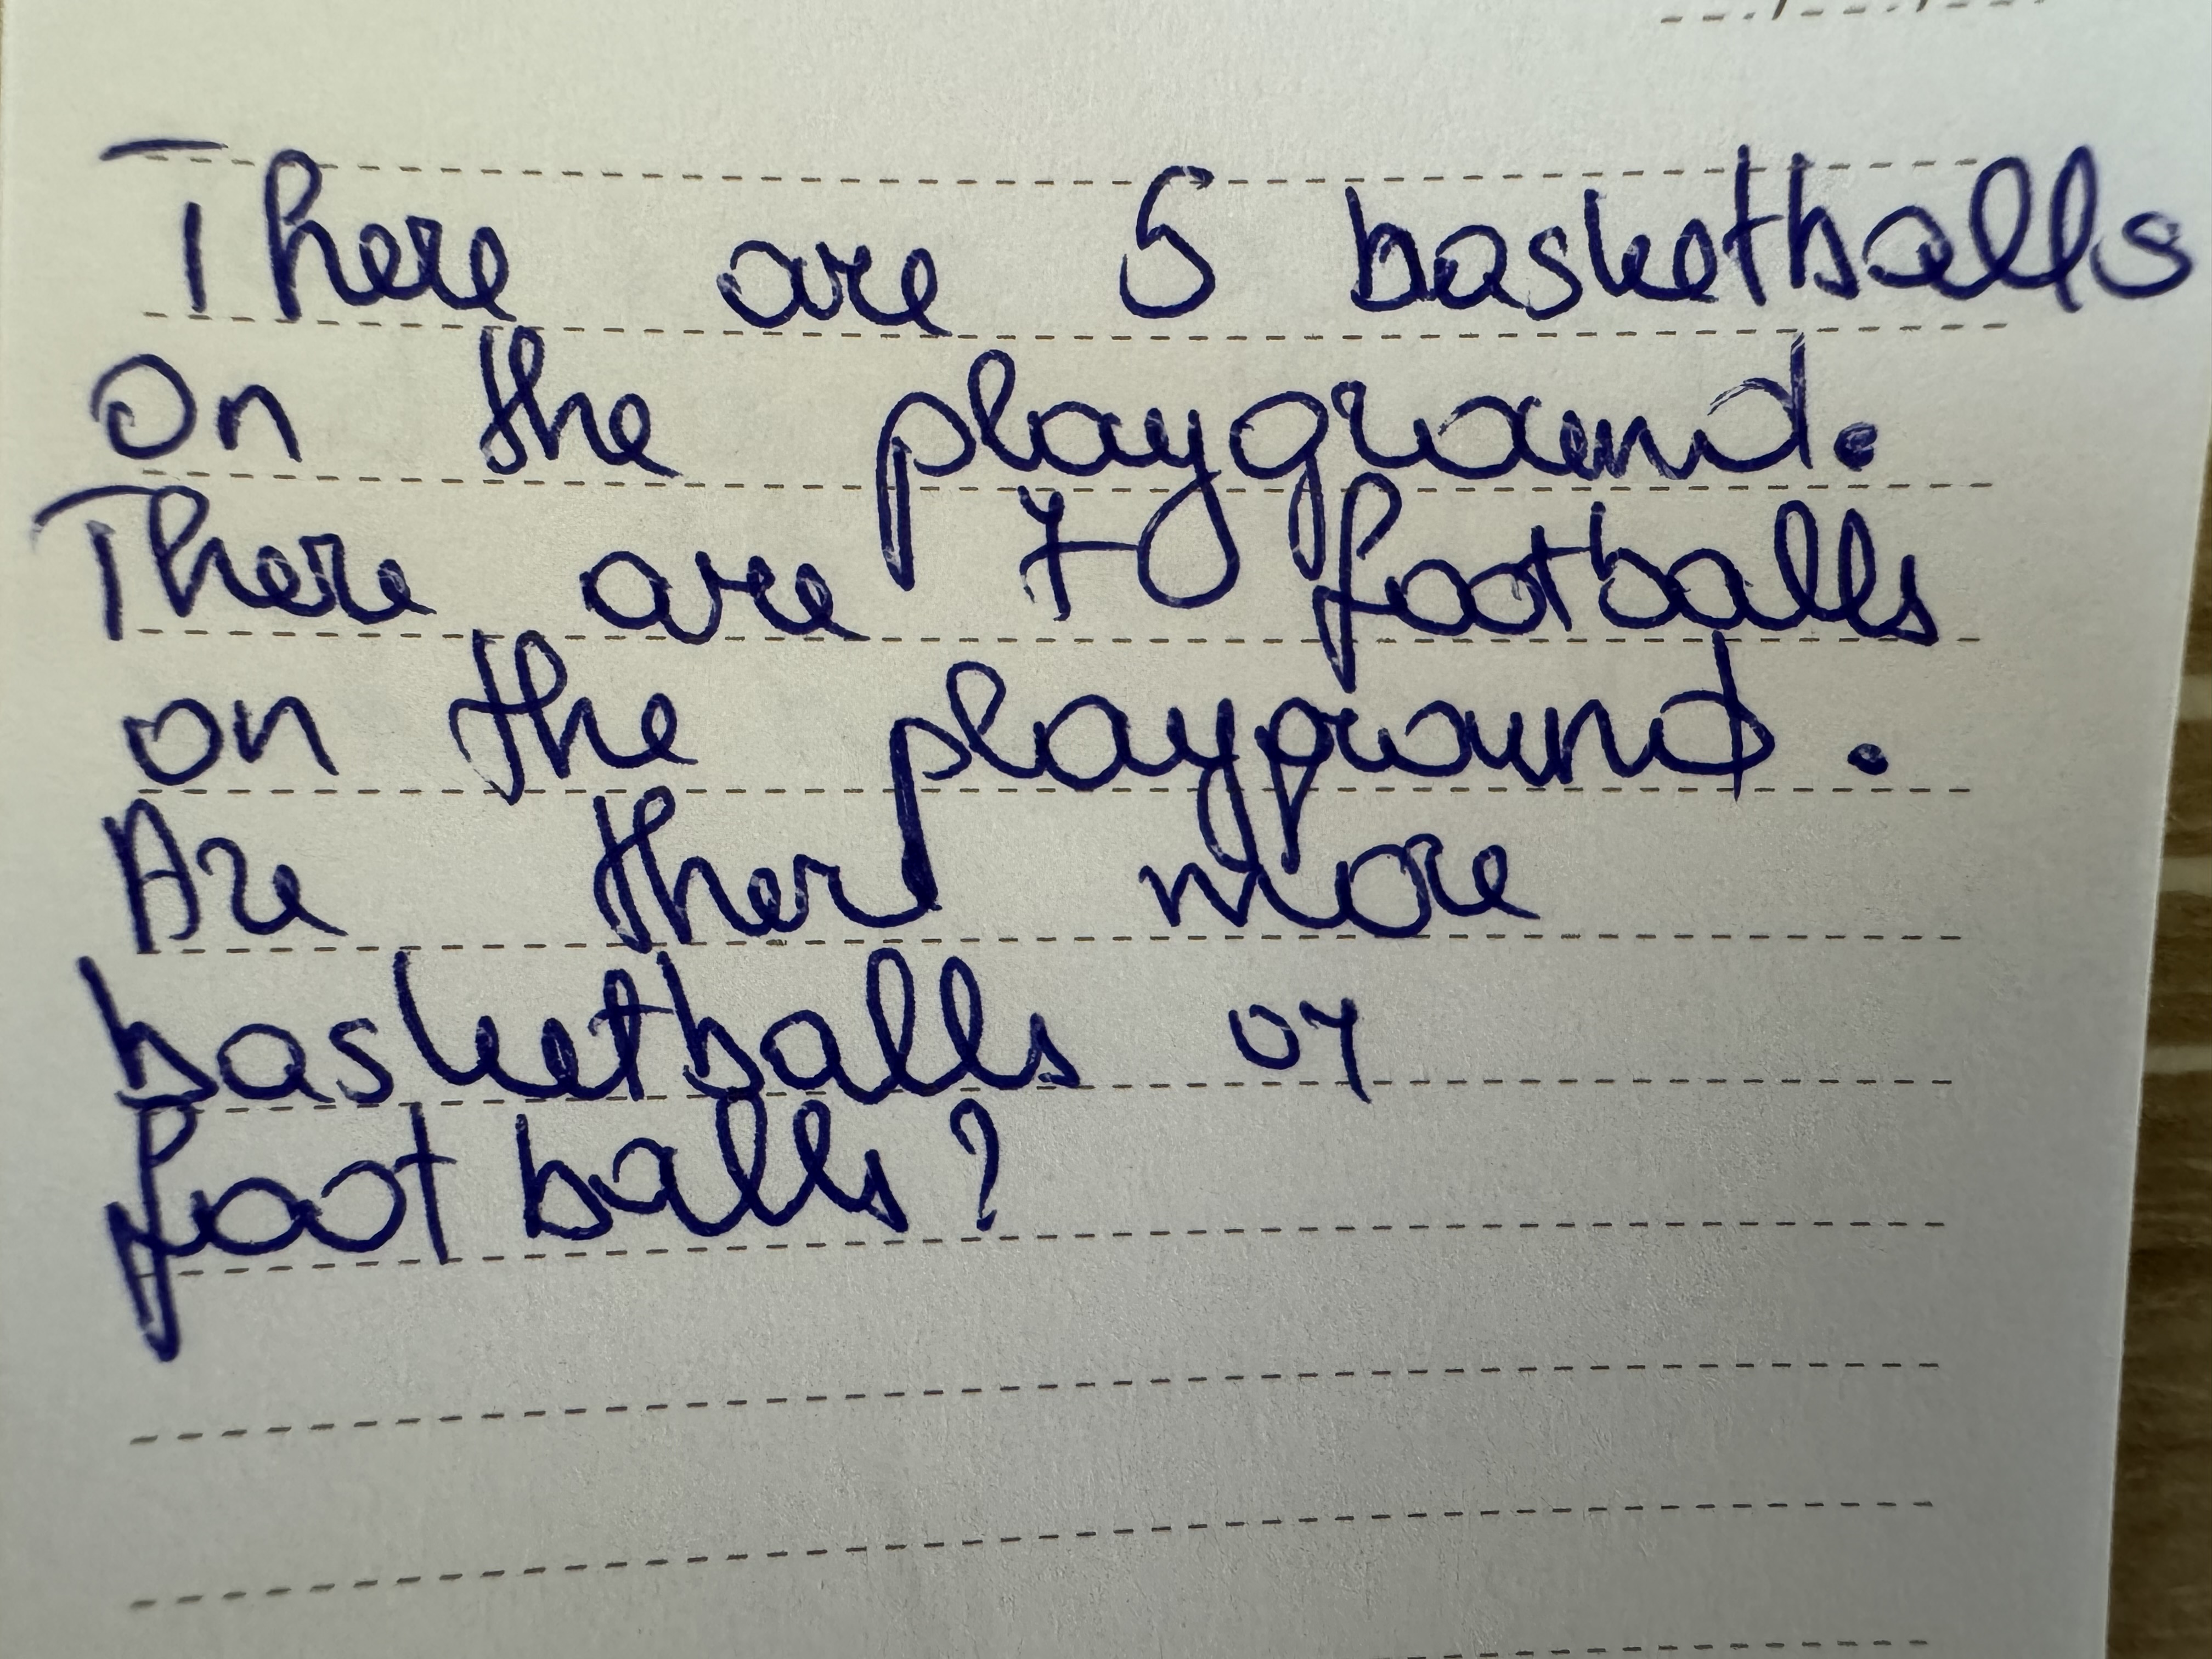 There are 5 basketballs
on the playground.
There are 7 footballs
on the playground.
Are there more
basketballs or
foot balls?